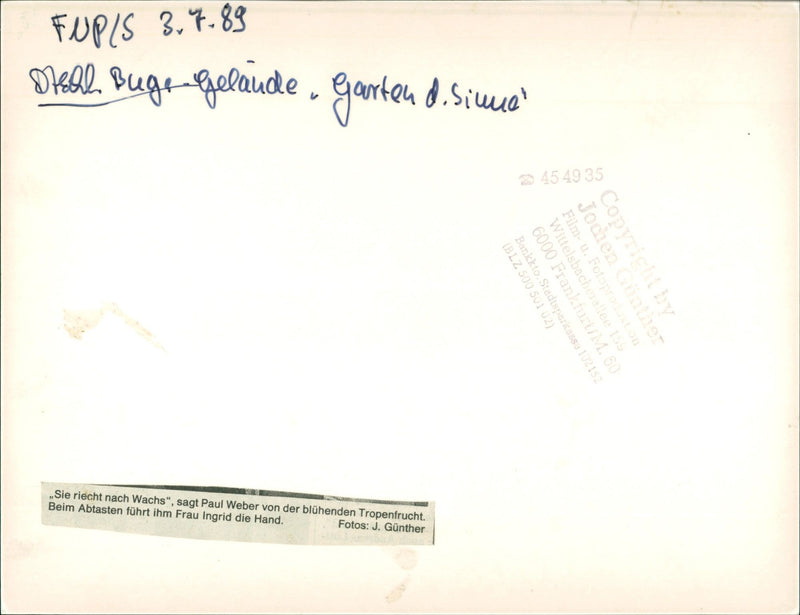 FNP/S 3.7.89
Buga-Gelände „Garten d. Sinne"
☎ 45 49 35
Copyright by
Jochen Günther
Film- u. Fotoproduktion
Wittelsbacherallee
6000 Frankfurt/M. 60
Bankkto. Stadtsparkasse
(BLZ 500 501 02)
„Sie riecht nach Wachs“, sagt Paul Weber von der blühenden Tropenfrucht.
Beim Abtasten führt ihm Frau Ingrid die Hand. Fotos: J. Günther